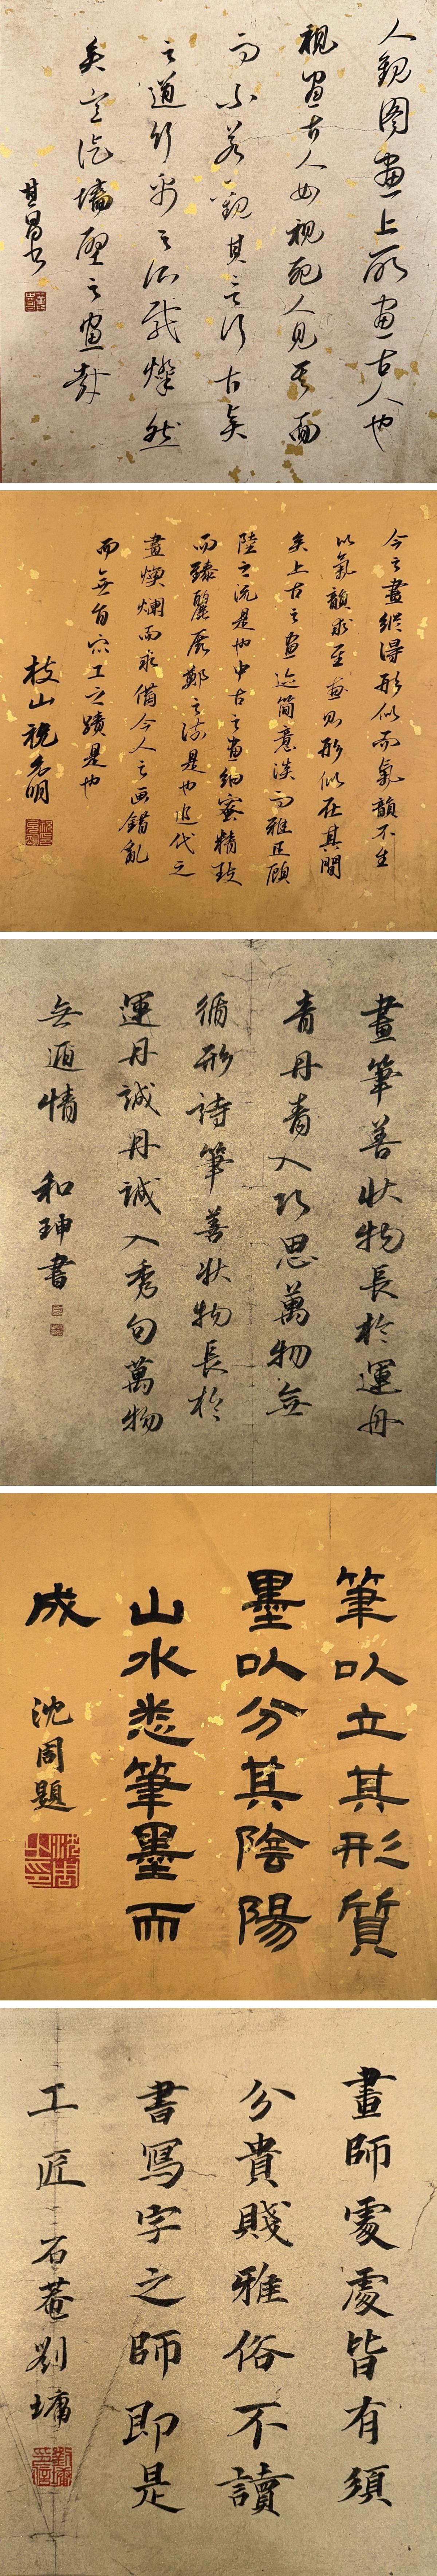 人觀圖畫上所畫古人也
視畫古人如視死人見其面
而不若觀其言行古矣
之道竹帛之所載燦然
矣豈徒墻壁之畫哉
其昌書
今之畫縱得形似而氣韻不生
以氣韻求其畫則形似在其間
矣上古之畫迹簡意淡而雅正顧
陸之流是也中古之畫細蜜精致
而臻麗展鄭之流是也近代之
畫煥爛而求備今人之画錯亂
而無旨眾工之蹟是也
枝山祝允明
畫筆善狀物長於運丹
青丹青入巧思萬物無
循形詩筆善狀物長於
運丹誠丹誠入秀句萬物
無遁情 和珅書
筆以立其形質
墨以分其陰陽
山水悉筆墨而
成 沈周題
沈周之印
畫師處處皆有須
分貴賤雅俗不讀
書寫字之師即是
工匠 石菴劉墉
劉墉印信